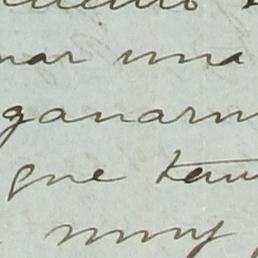 nar una
ganarn
que tam
muy